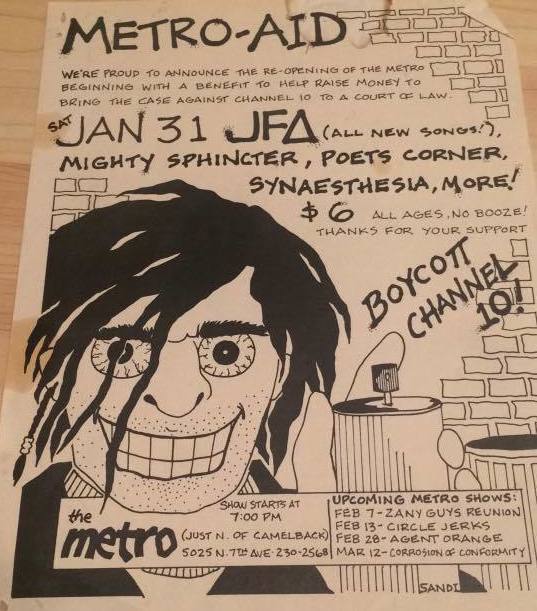 METRO-AID
WE'RE PROUD TO ANNOUNCE THE RE-OPENING OF THE METRO
BEGINNING WITH A BENEFIT TO HELP RAISE MONEY TO
BRING THE CASE AGAINST CHANNEL 10 TO A COURT OF LAW.
SAT JAN 31 JFA (ALL NEW SONGS!),
MIGHTY SPHINCTER, POETS CORNER,
SYNAESTHESIA, MORE!
$6 ALL AGES, NO BOOZE!
THANKS FOR YOUR SUPPORT
BOYCOTT
CHANNEL
10!
the
metro
SHOW STARTS AT
7:00 PM
(JUST N. OF CAMELBACK)
5025 N. 7TH AVE · 230-2568
UPCOMING METRO SHOWS:
FEB 7 - ZANY GUYS REUNION
FEB 13 - CIRCLE JERKS
FEB 28 - AGENT ORANGE
MAR 12 - CORROSION OF CONFORMITY
SANDI